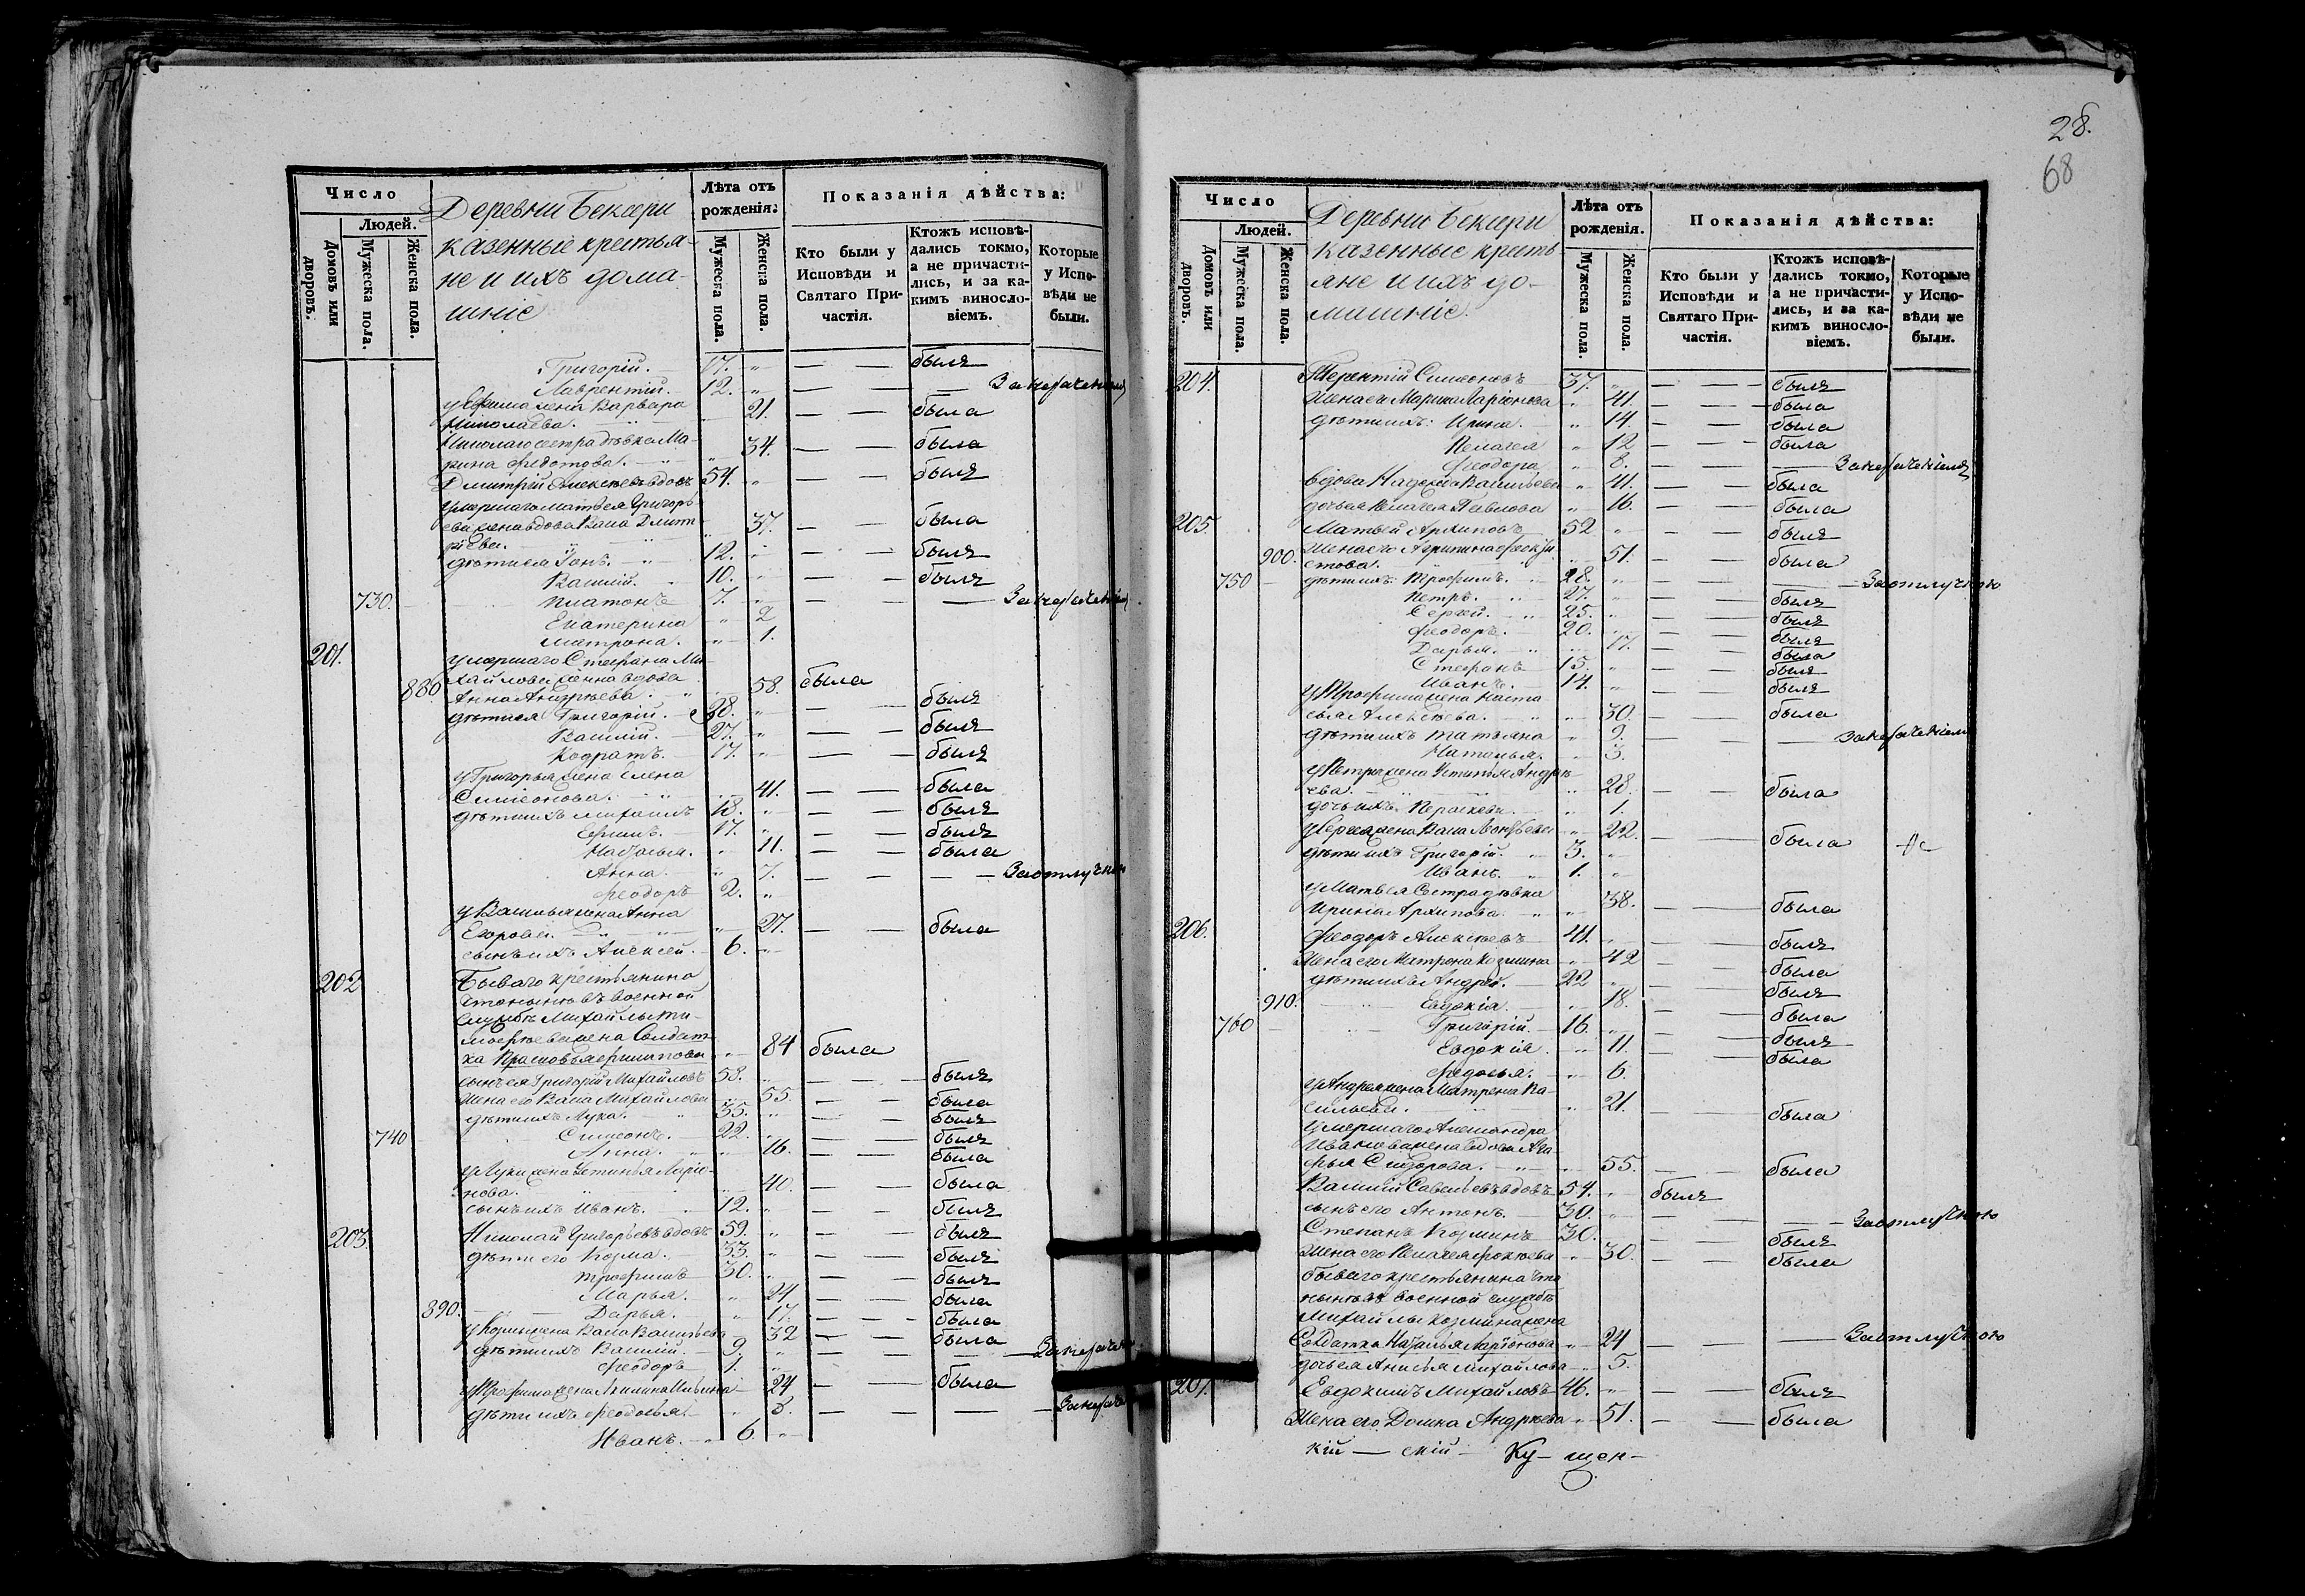 Число
Людей.
Домовъ или дворовъ.
Мужеска пола.
Женска пола.
Деревни Бексери
казенные крестья-
не и ихъ дома-
шніе
Лѣта отъ рожденія:
Мужеска пола.
Женска пола.
Показанія дѣйства:
Кто были у Исповѣди и Святаго При-частія.
Ктожъ исповѣ-дались токмо, а не причасти-лись, и за ка-кимъ винословіемъ.
Которые у Испо-вѣди не были.
Григорій. 17. " — — былъ
Лаврентій. 12. " — —
жена Варвара
Николаева. 21. — — была
Николаю сестра дѣвка Ма-
рина Федотова. " 34. — — была
Дмитрій Алексѣевъ вдовъ 54. " — — былъ
умершаго Матвея Григорь-
ева жена вдова Васа Дмит-
ріева. " 37. — — была
дѣти ея Іонъ. 12. " — — былъ
Василій. 10. " — — былъ
730. Платонъ 7. " — —
Екатерина " 2
Матрона. " 1.
201. умершаго Стефана Ми-
хайлова жена вдова
880 Анна Андреева. " 58. была
дѣти ея Григорій. 38. " — — былъ
Василій. 27. " — — былъ
Кодратъ. 17. " — — былъ
у Григорья жена Елена
Симеонова. 41. — — была
дѣти ихъ Михаилъ 18. " — — былъ
Ефимъ. 17. " — — былъ
Наталья. " 11. — — была
Анна. " 7. — — — — За отлучкою
Феодоръ 2. "
у Василья жена Анна
Егорова. " 27. — — была
сынъ ихъ Алексей. 6. "
202 Бываго крестьянина
что нынѣ въ военной
службѣ Михайлы Ти-
мофеева жена Солдат-
ка Прасковья Филипова " 84 была
сынъ ея Григорій Михайловъ 53. " — — былъ
Жена его Васа Михайлова " 55. — — была
дѣти ихъ Лука. 35. " — — былъ
740 Симеонъ. 22. " — — былъ
Анна. " 16. — — была
у Луки жена Устинья Ларіо-
нова. 40. — — была
сынъ ихъ Иванъ. 12. " — — былъ
203. Николай Григорьевъ вдовъ 59. " — — былъ
дѣти его Козма. 33. " — — былъ
Трофимъ 30. " — — былъ
Марья. " 24 — — была
890. Дарья. " 17. — — была
у Козмы жена Васа Васильева 32 — — была
дѣти ихъ Василій. 9. " — —
Феодоръ 1. "
у Трофима жена Акилина Ильина 24 — — была
дѣти ихъ Феодосья
Иванъ. 6. "
28.
68
Число
Людей.
Домовъ или дворовъ.
Мужеска пола.
Женска пола.
Деревни Бексери
казенные кресть-
яне и ихъ до-
машніе.
Лѣта отъ рожденія.
Мужеска пола.
Женска пола.
Показанія дѣйства:
Кто были у Исповѣди и Святаго При-частія.
Ктожъ исповѣ-дались токмо, а не причасти-лись, и за ка-кимъ винословіемъ.
Которые у Испо-вѣди не были.
204. Терентій Симеоновъ 37. " — — былъ
Жена его Марина Ларіонова " 41. — — была
дѣти ихъ: Ирина. " 14. — — была
Пелагея " 12 — — была
Феодора " 8. — —
вдова Надежда Васильева " 41. — — была
дочь ея Пелагея Павлова " 16. — — была
205. Матвей Архиповъ 52 " — — былъ
900. Жена его Агрипина Феокти-
стова. 51. — — была
750 дѣти ихъ: Трофимъ. 28. " — За отлучкою
Петръ. 27. " — — былъ
Сергей. 25. " — — былъ
Феодоръ. 20. " — — былъ
Дарья. " 17. — — была
Стефанъ 15. " — — былъ
Иванъ. 14. " — — былъ
у Трофима жена Наста-
сья Алексѣева. " 30. — — была
дѣти ихъ Татьяна " 9. — —
Наталья. " 3.
у Петра жена Устинья Андрѣ-
ева. " 28. — — была
дочь ихъ Параскева. " 1.
у Сергея жена Васа Леонтьева " 22. — — была
дѣти ихъ Григорій. 3. "
Иванъ. 1. "
у Матвея Сестра дѣвка
Ирина Архипова. " 38. — — была
206. Феодоръ Алексѣевъ 41. " — — былъ
Жена его Матрона Козмина " 42 — — была
дѣти ихъ Андрей. 22 " — — былъ
910. Евдокія. " 18. — — была
760 Григорій. 16. " — — былъ
Евдокія. " 11. — — была
Федосья. " 6.
у Андрея жена Матрена Ва-
сильева. " 21. — — была
умершаго Александра
Иванова жена вдова Ага-
фья Сидорова. " 55. — — была
Василій Савельевъ вдовъ 54. " былъ
сынъ его Антонъ. 30. " — — За отлучкою
Степанъ Козминъ 30. — — былъ
Жена его Пелагея Фокеева " 30. — — была
бываго крестьянина что
нынѣ въ военной службѣ
Михайлы Козмина жена
Солдатка Наталья Ларіонова " 24 — — За отлучкою
дочь ея Анисья Михайлова " 5.
207. Евдокимъ Михайловъ 46. " — — былъ
Жена его Домна Андреева " 51. — — была
кій — скій — Ку — шен —